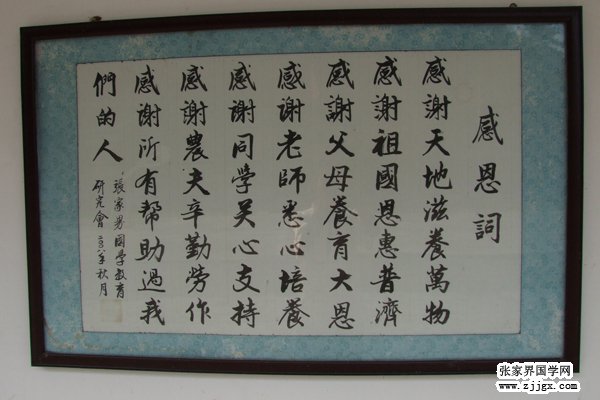 感恩詞
感謝天地滋養萬物
感謝祖國恩惠普濟
感謝父母養育大恩
感谢老師悉心培養
感謝同學关心支持
感謝農夫辛勤勞作
感谢所有幫助過我
們的人
張家界國學教育
研究會 秋月
张家界国学网
www.zjjgx.com